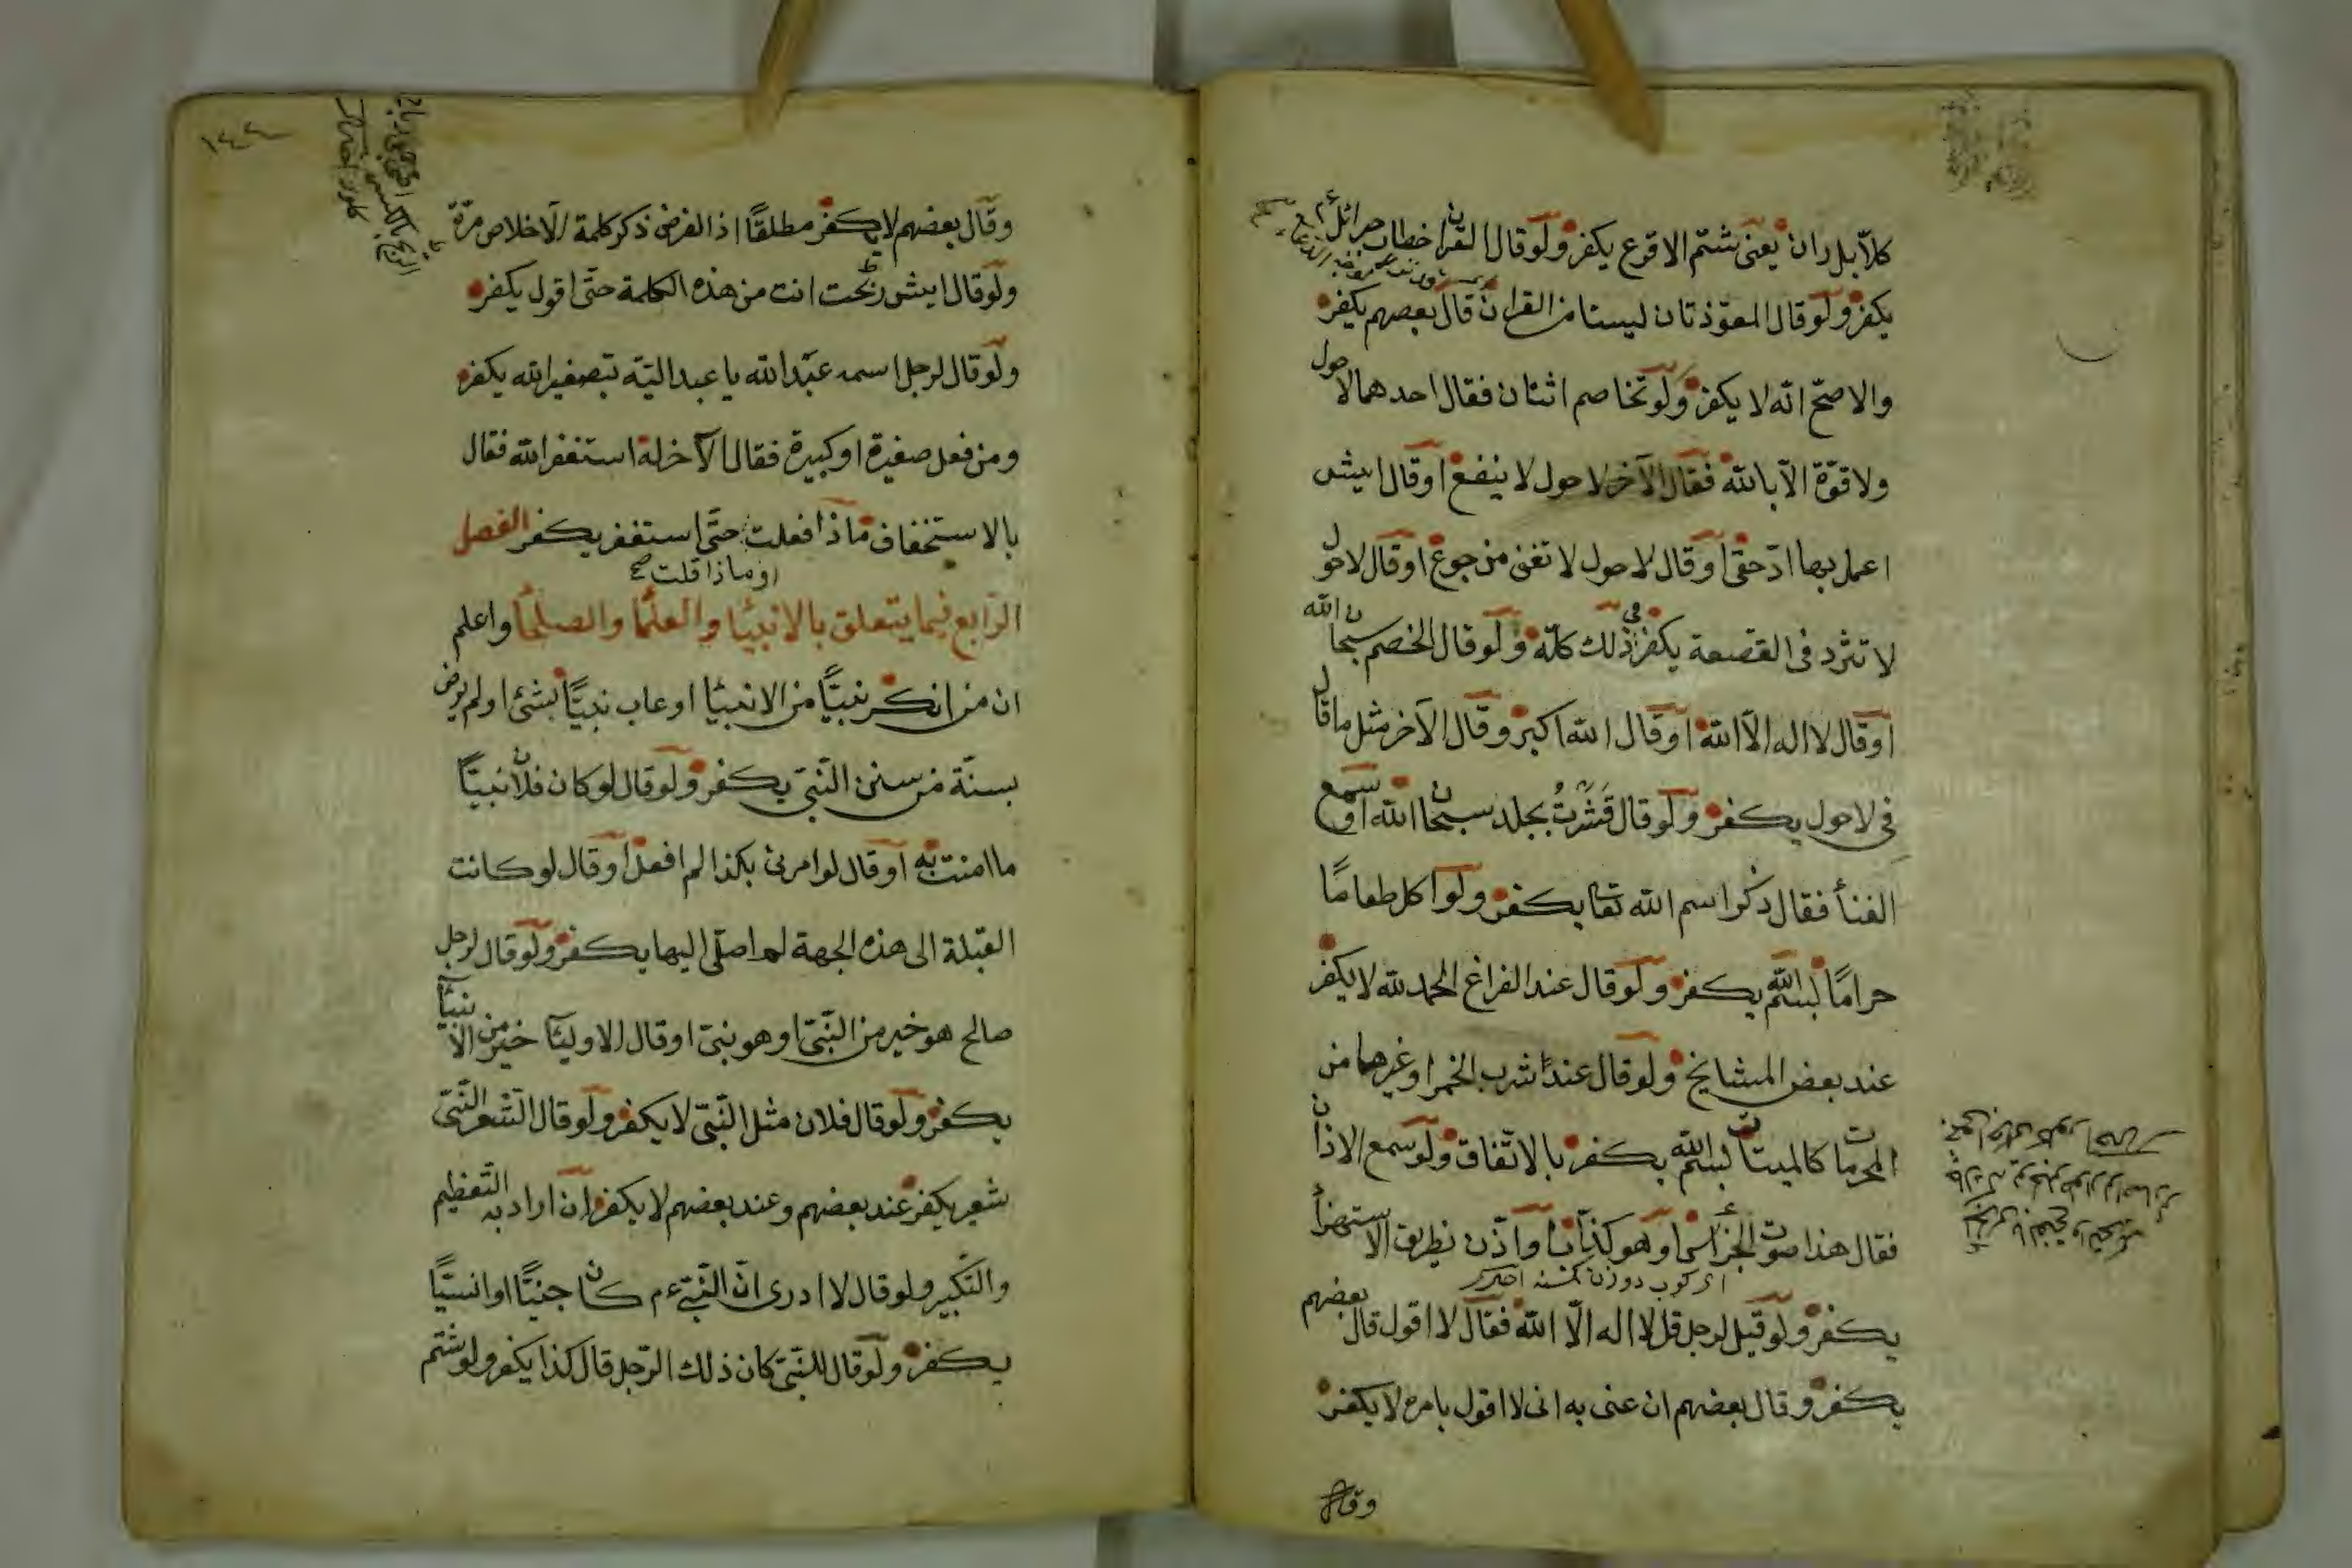 كلاّ بل ران يعنى شتم الاقرع يكفر ولو قال القران خطاب جبرائل ءم
يكفر ولو قال المعوّذتان ليستا من القران قال بعضهم يكفر
والاصحّ انّه لا يكفر ولو تخاصم اثنان فقال احدهما لا حول
ولا قوّة الاّ بالله فقال الآخر لا حول لا ينفع او قال ايش
اعمل بها ادّ حقى او قال لا حول لا تغنى من جوع او قال لا حول
لا تثرد فى القصعة يكفر فى ذلك كلّه ولو قال الخصم سبحان الله
او قال لا اله الاّ الله او قال الله اكبر وقال الآخر مثل ما قال
فى لا حول يكفر ولو قال قَشَرْتُ بجلد سبحان الله او سمع
الغنأ فقال ذكر اسم الله تعا يكفر ولو اكل طعامًا
حرامًا بسم الله يكفر ولو قال عند الفراغ الحمد لله لا يكفر
عند بعض المشايخ ولو قال عند شرب الخمر او غيرها من
المحرمات كالميتات بسم الله يكفر بالاتّفاق ولو سمع الاذان
فقال هذا صوت الجرس او هو كذاب او اذّن بطريق الاستهزأ
يكفر ولو قيل لرجل قل لا اله الاّ الله فقال لا اقول قال بعضهم
يكفر وقال بعضهم ان عنى به انى لا اقول بامره لا يكفر
وقال
١٤٤
وقال بعضهم لا يكفر مطلقًا اذ الفرض ذكر كلمة الاخلاص مرّة
ولو قال ايش ربحت انت من هذه الكلمة حتّى اقول يكفر
ولو قال لرجل اسمه عبد الله يا عبد اليّه بتصغير الله يكفر
ومن فعل صغيرة او كبيرة فقال الآخر له استغفر الله فقال
بالاستخفاف ماذا فعلت حتّى استغفر يكفر الفصل
او ماذا قلت صح
الرّابع فيما يتعلق بالانبيأ والعلمأ والصلحأ واعلم
ان من انكر نبيّا من الانبيأ او عاب نبيّا بشئ او لم يرض
بسنّة من سنن النّبىّ يكفر ولو قال لو كان فلان نبيّا
ما امنت به او قال لو امرنى بكذا لم افعل او قال لو كانت
القبلة الى هذه الجهة لم اصلّى اليها يكفر ولو قال لرجل
صالح هو خير من النّبىّ او هو نبىّ او قال الاوليأ خير من الانبيأ
يكفر ولو قال فلان مثل النّبىّ لا يكفر ولو قال لشعر النّبىّ
شعير يكفر عند بعضهم وعند بعضهم لا يكفر ان اراد به التّعظيم
والتّكبير ولو قال لا ادرى انّ النّبىّ ءم كان جنيًّا او انسيًّا
يكفر ولو قال للنّبىّ كان ذلك الرّجل قال كذا يكفر ولو شتم